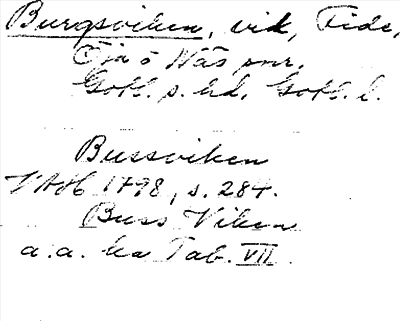 Burgsviken, vik, Fide,
Öja o Näs snr.
Gotl. s. hd, Gotl. l.
Bussviken
VAH 1798, s. 284.
Buss Viken
a. a. Tab. VII